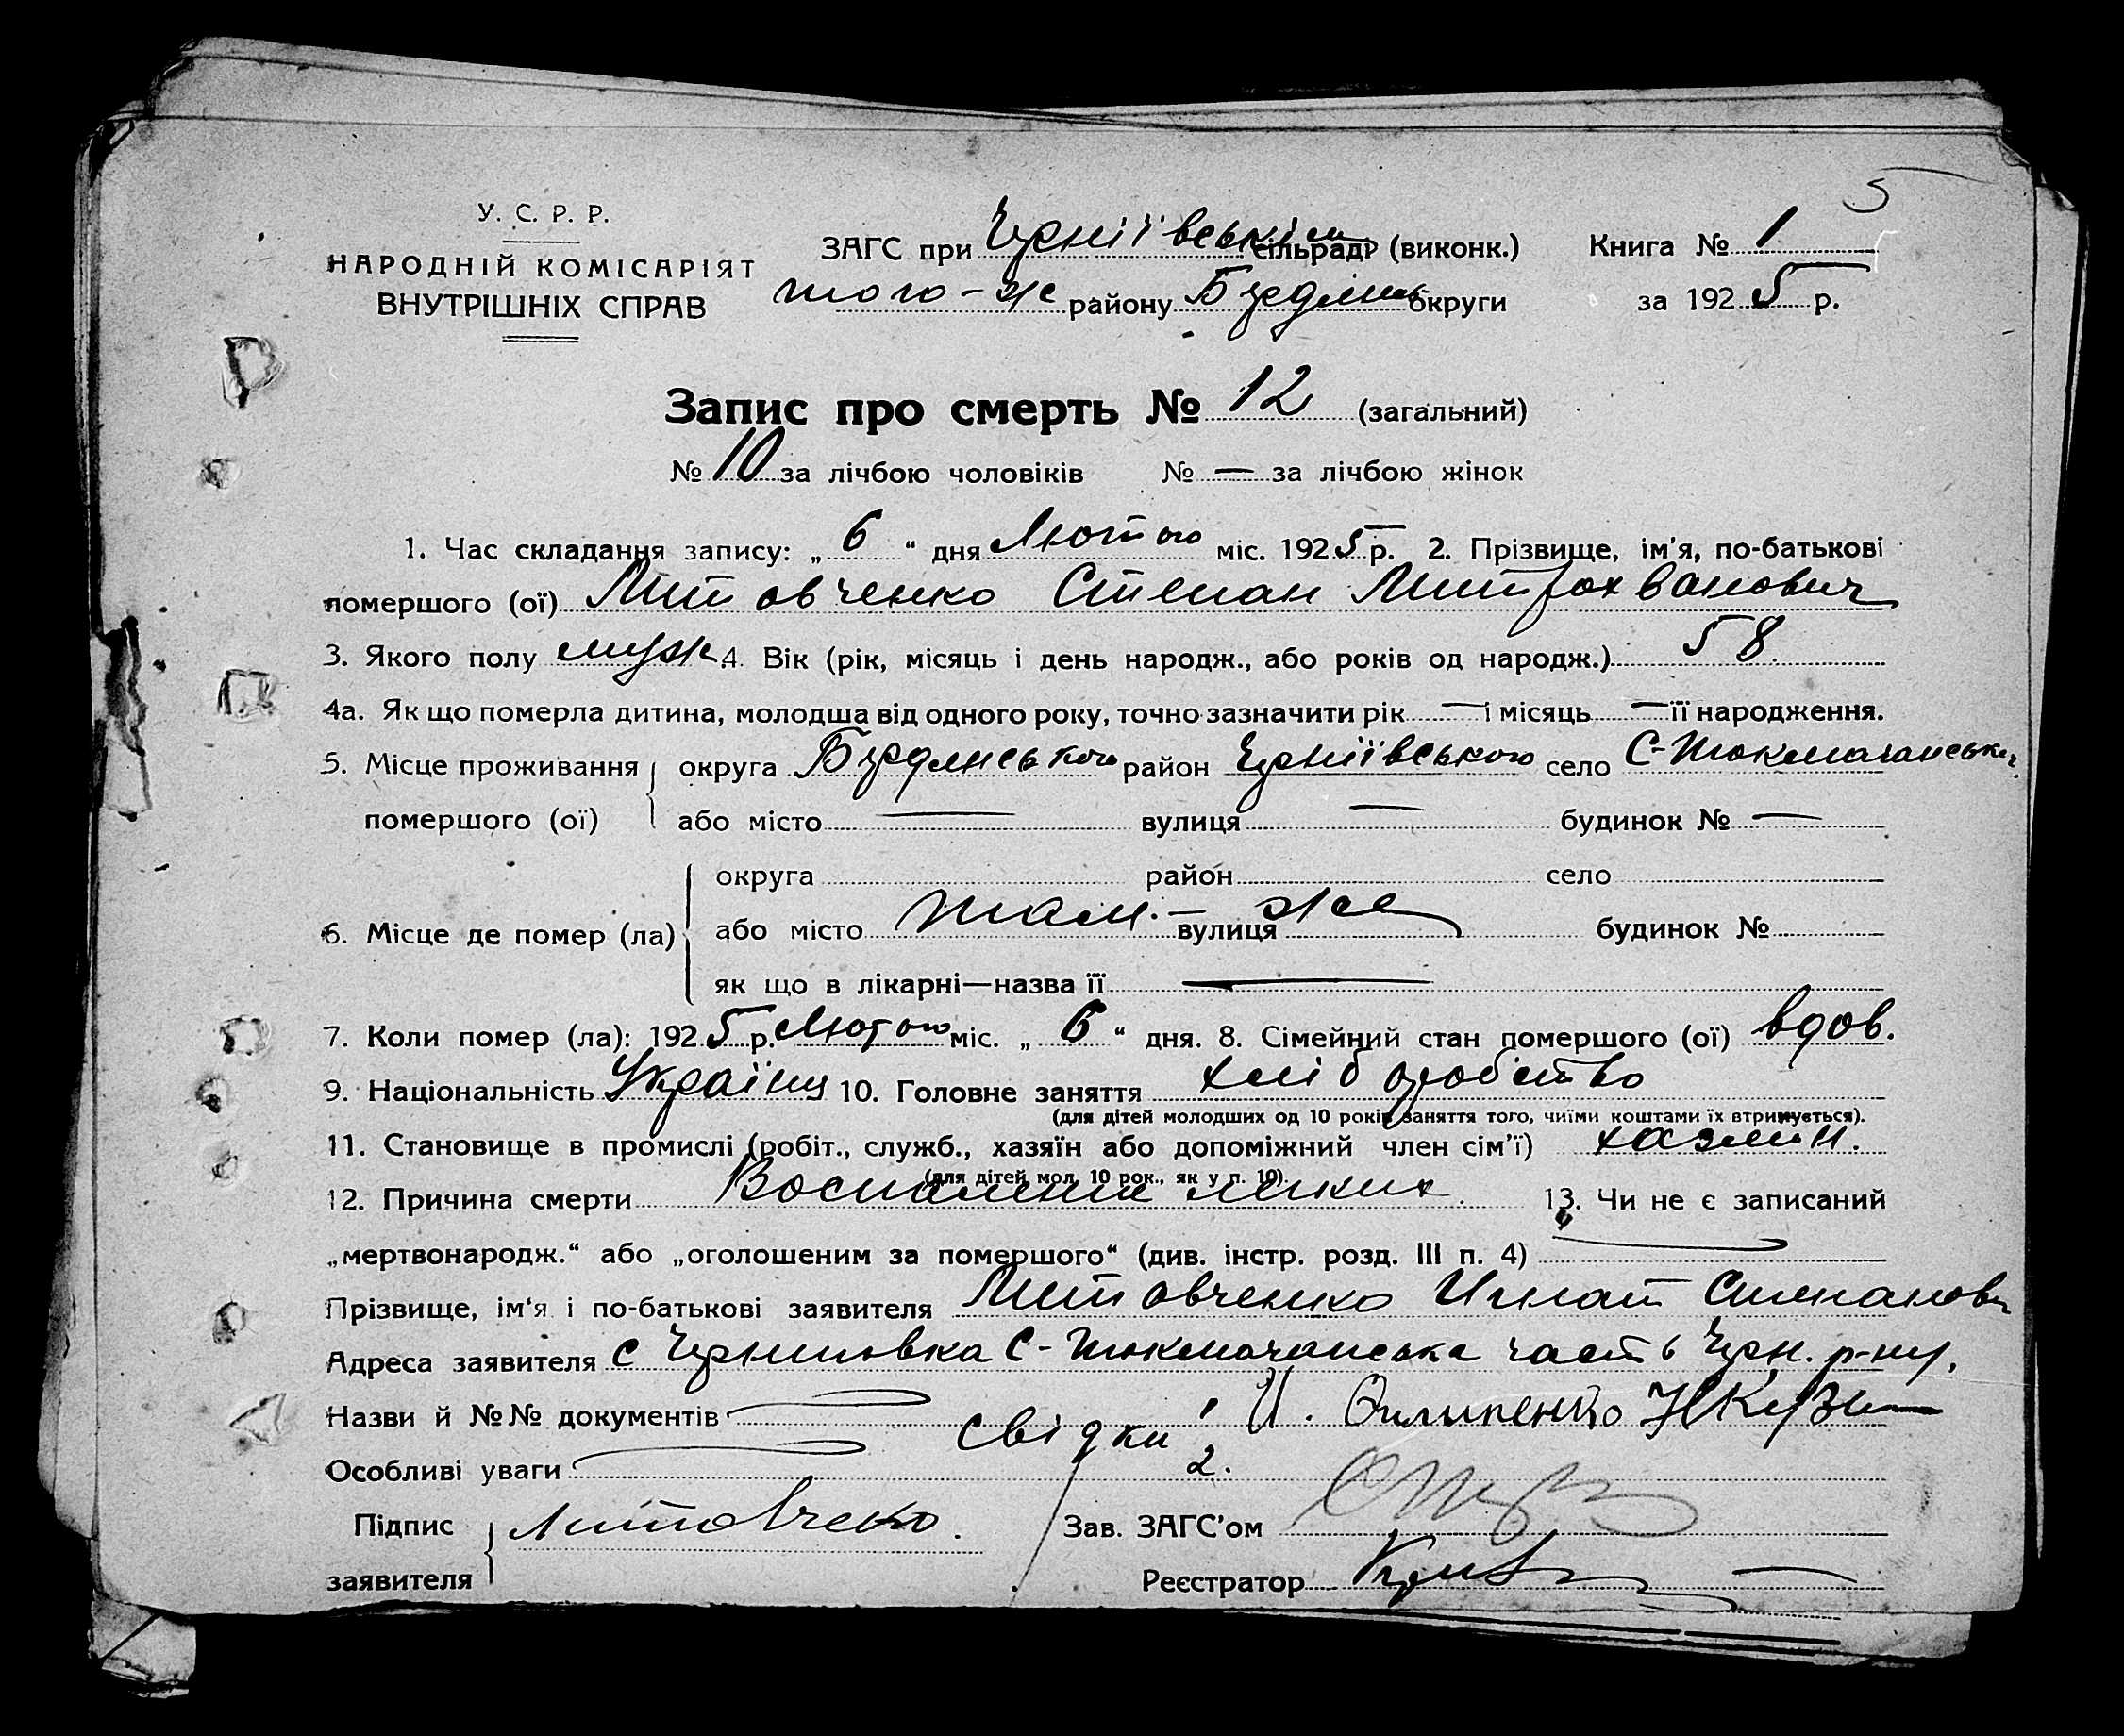 5
У. С. Р. Р.
НАРОДНІЙ КОМІСАРІЯТ
ВНУТРІШНІХ СПРАВ
ЗАГС при Черніївськім сільраді (виконк.)
того-же району Бердянс округи
Книга № 1
за 1925 р.
Запис про смерть № 12 (загальний)
№ 10 за лічбою чоловіків № — за лічбою жінок
1. Час складання запису: „6“ дня Лютого міс. 1925 р. 2. Прізвище, ім'я, по-батькові
помершого (ої) Литовченко Степан Митрохванович
3. Якого полу муж. 4. Вік (рік, місяць і день народж., або років од народж.) 58.
4а. Як що померла дитина, молодша від одного року, точно зазначити рік — і місяць — її народження.
5. Місце проживання помершого (ої) округа Бердянського район Черніївського село С-Токмачанська
або місто — вулиця — будинок № —
6. Місце де помер (ла) округа район село
або місто там.- же вулиця будинок №
як що в лікарні—назва її —
7. Коли помер (ла): 1925 р. Лютого міс. „6“ дня. 8. Сімейний стан помершого (ої) вдов.
9. Національність Україн 10. Головне заняття хліборобство
(для дітей молодших од 10 років заняття того, чиїми коштами їх втримується).
11. Становище в промислі (робіт., служб., хазяїн або допоміжний член сім'ї) хазяин.
(для дітей мол. 10 рок., як у п. 10).
12. Причина смерти Воспаление легких. 13. Чи не є записаний
„мертвонародж.“ або „оголошеним за помершого“ (див. інстр. розд. III п. 4)
Прізвище, ім'я і по-батькові заявителя Литовченко Игнат Степанов
Адреса заявителя с Черниговка С-Токмачанська часть Черн. р-ну.
Назви й №№ документів
свідки 1 И.
Особливі уваги 2.
Підпис заявителя Литовчеко.
Зав. ЗАГС'ом
Реєстратор